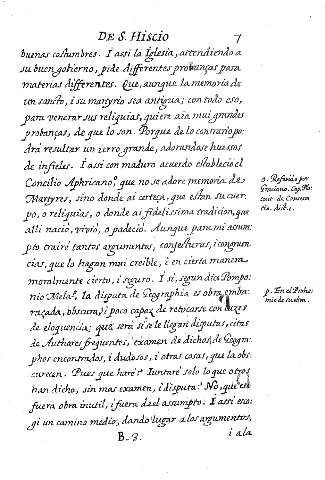 DE S. HISCIO 7
buenas costumbres. I assi la Iglesia, attendiendo a
su buen gobierno, pide differentes probanças para
materias differentes. Que, aunque la memoria de
un sancto, i su martyrio sea antigua; con todo esso,
para venerar sus reliquias, quiere aia mui grandes
probanças, de que lo son. Porque de lo contrario po
drà resultar un ierro grande, adorandose huessos
de infieles. I assi con maduro acuerdo establecio el
Concilio Aphricano, que no se adore memoria de
Martyres, sino donde ai certeza, que estan su cuer
po, o reliquias, o donde ai fidelissima tradicion, que
alli nacio, vivió, o padeciò. Aunque para mi assum
pto traire tantos argumentos, conjecturas, i congruen
cias, que lo hagan mui creible, i en cierta manera
moralmente cierto, i seguro. I si, segun dice Pompo
nio Mela, la disputa de Geographia es obra emba
razada, obscura, i poco capaz de retocarse con luzes
de eloquencia; que serà si se le llegan disputas, citas
de Authores frequentes, examen de dichos de Geogra
phos encontrados, i dudosos, i otras cosas, que la obs
curecen. Pues que harè? Iuntarè solo lo que otros
han dicho, sin mas examen, i disputa? No, que esse
fuera obra inutil, i fuera del assumpto. I assi esco
gi un camino medio, dando lugar a los argumentos,
B. 3. i a la
o. Referido por
Graciano. Cap.
de Consecra
tio. dist. 1.
p. En el Prohe
mio de su obra.